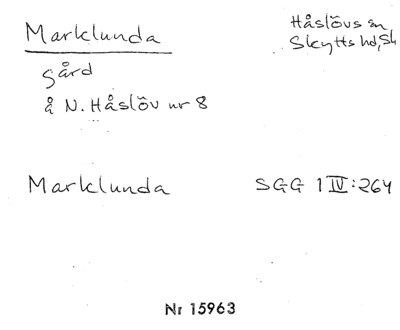 Marklunda
Håslövs sn
Skytts hd, Sk
gård
å N. Håslöv nr 8
Marklunda SGG 1 IV:264
Nr 15963